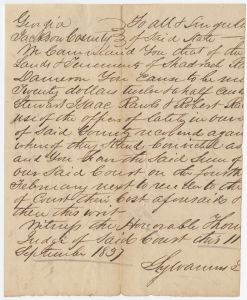 Georgia } To all & Singular
Jackson County } of Said State
We Command You that of the
Lands & Tenements of
Dameron You Cause to be
Twenty dollars twelve & half cents
Stewart Isaac & Robert
use of the officers of
of Said County
where of they Stand Convicted
and You have the Said Sum of
our Said Court on the fourth
February next to render to the
of Court their Cost aforesaid
then this writ
Witness the Honorable
Judge of Said Court this 11
September 1837
Sylvanus